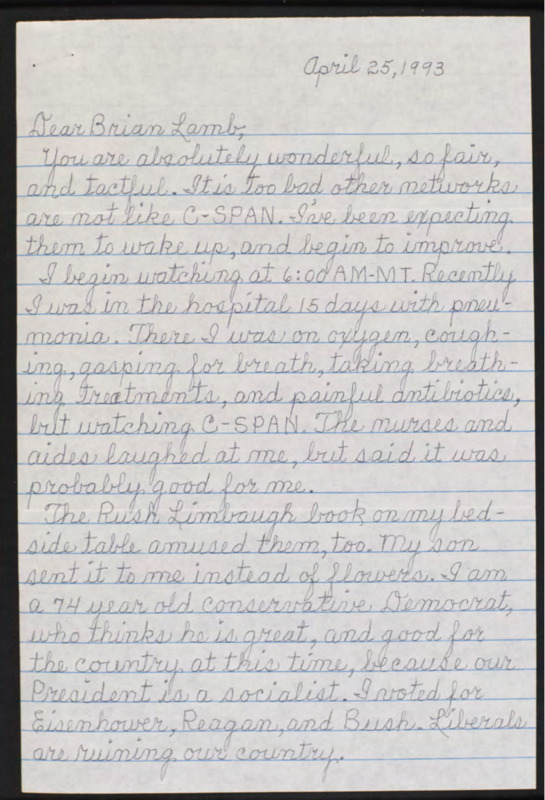 April 25, 1993
Dear Brian Lamb,
You are absolutely wonderful, so fair,
and tactful. It is too bad other networks
are not like C-SPAN. I've been expecting
them to wake up, and begin to improve.
I begin watching at 6:00 AM-MT. Recently
I was in the hospital 15 days with pneu-
monia. There I was on oxygen, cough-
ing, gasping for breath, taking breath-
ing treatments, and painful antibiotics,
but watching C-SPAN. The nurses and
aides laughed at me, but said it was
probably good for me.
The Rush Limbaugh book on my bed-
side table amused them, too. My son
sent it to me instead of flowers. I am
a 74 year old conservative Democrat,
who thinks he is great, and good for
the country at this time, because our
President is a socialist. I voted for
Eisenhower, Reagan, and Bush. Liberals
are ruining our country.